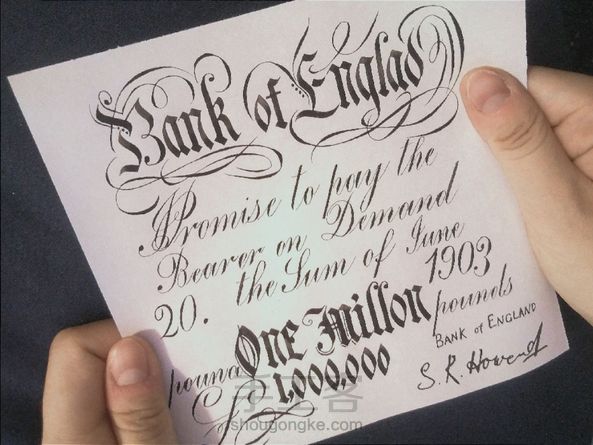 Bank of Englad
Promise to pay the
Bearer on Demand
20. the Sum of June 1903
pound One Millon pounds
£1,000,000
BANK of ENGLAND
S.R. Howard
手工客
shougongke.com